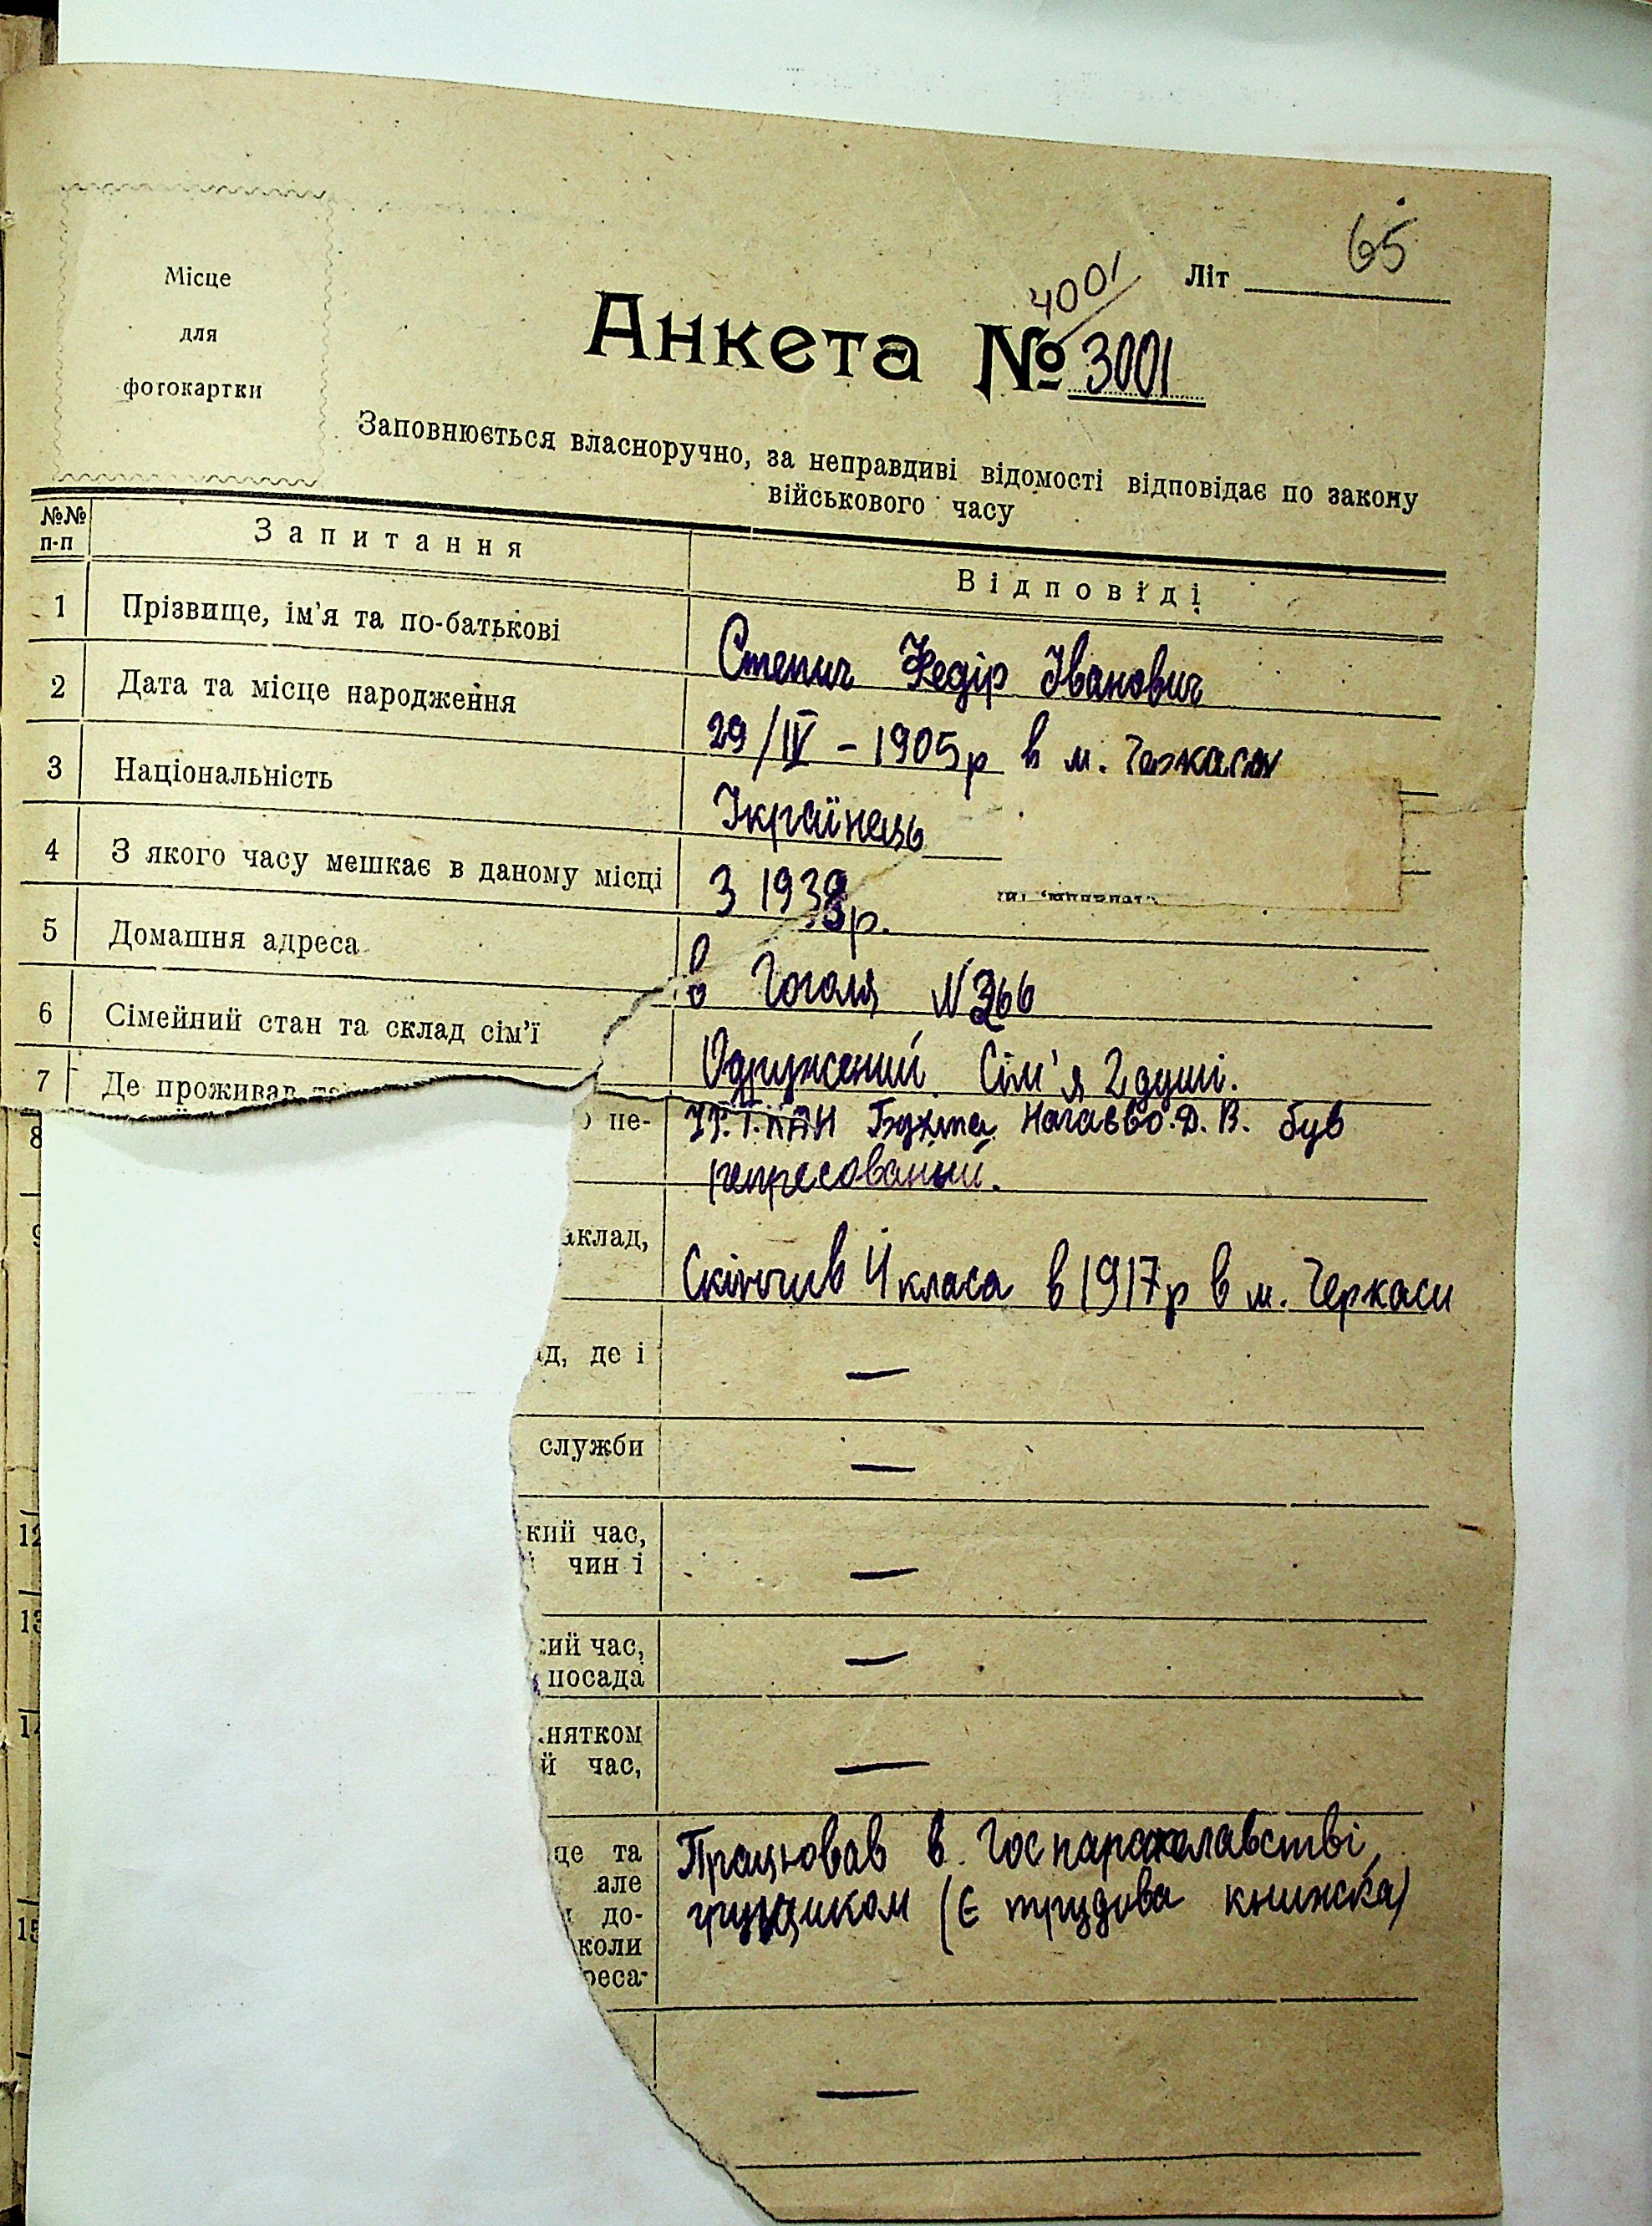 65
Літ
4001
Місце
для
фотокартки
Анкета № 3001
Заповнюється власноручно, за неправдиві відомості відповідає по закону
військового часу
№№ п-п
Запитання
Відповіді
1 Прізвище, ім'я та по-батькові
Степич Федір Іванович
2 Дата та місце народження
29/IV – 1905р в м. Черкасах
3 Національність
Українець
4 З якого часу мешкає в даному місці
З 1938р.
5 Домашня адреса
в Гоголя N 266
6 Сімейний стан та склад сім'ї
Одружений. Сім'я 2 душі.
7 Де проживав
8
не-
Бухта Нагаєво. Д. В. був
репресований.
аклад,
Скінчив 4 класа в 1917р в м. Черкаси
д, де і
—
служби
—
12
кий час,
чин і
—
13
ий час,
посада
—
14
нятком
й час,
—
15
це та
але
до-
коли
реса-
Працював в
грущиком (Є трудова книжка)
—